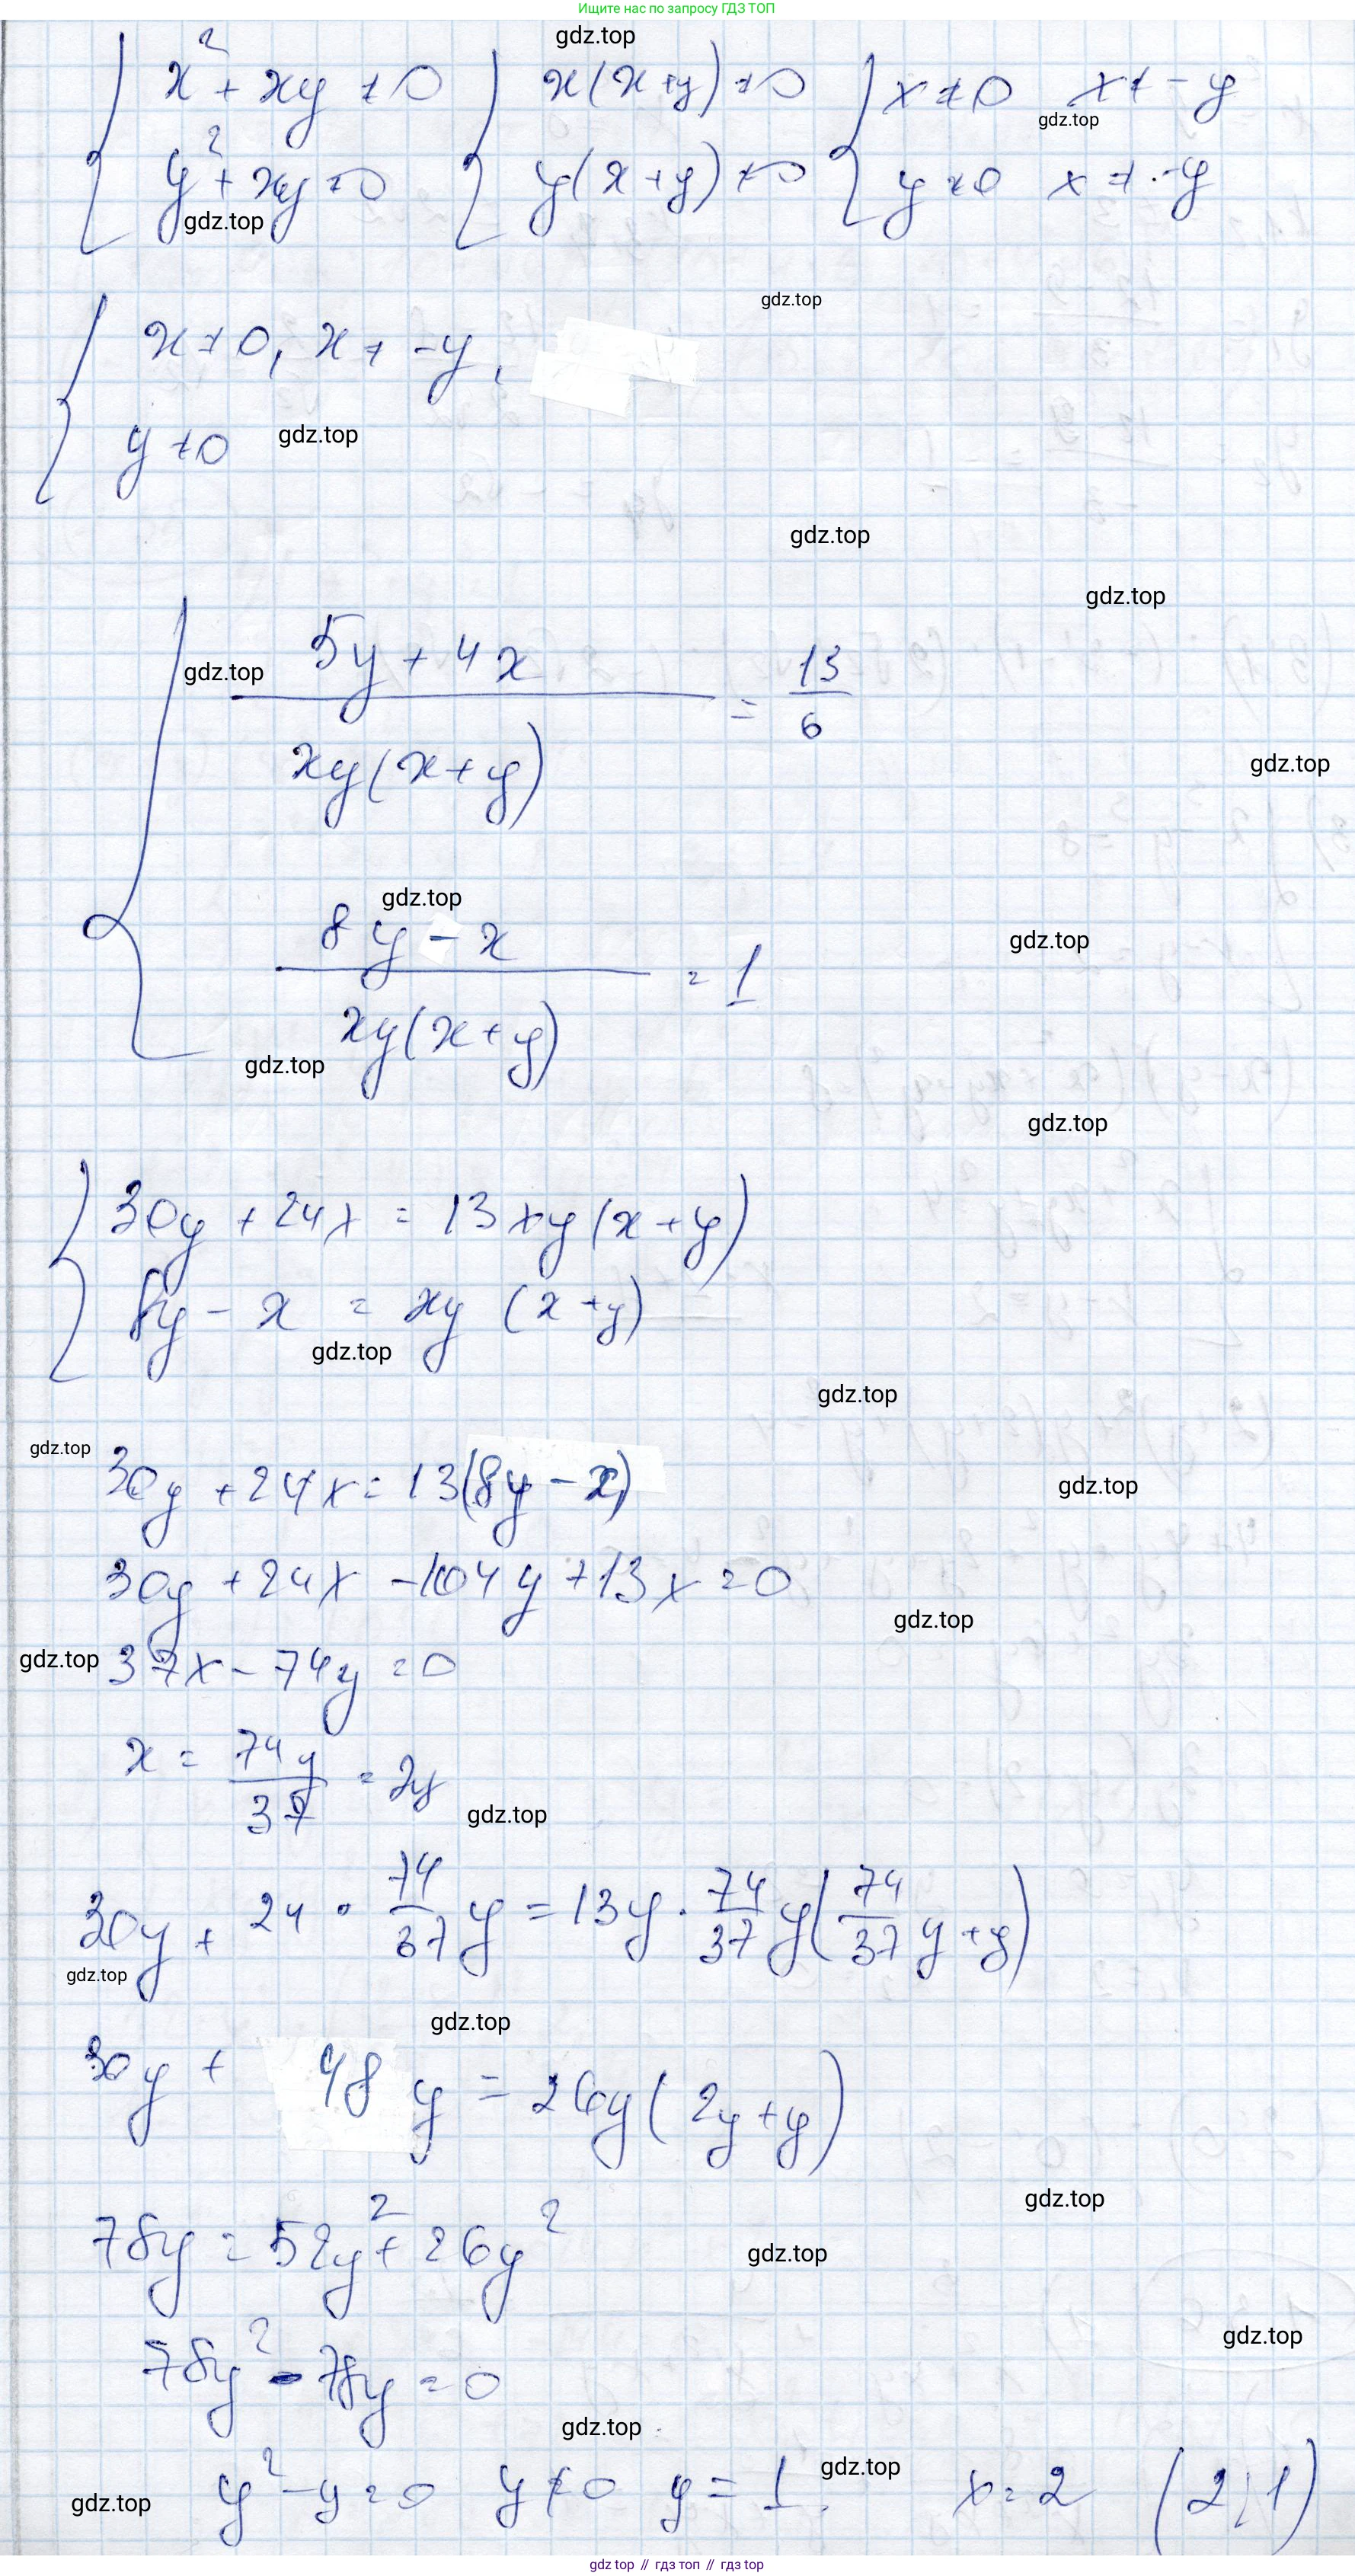 Ищите нас по запросу ГДЗ ТОП
gdz.top
{ x² + xy ≠ 0 { x(x+y) ≠ 0 { x ≠ 0 x ≠ -y
gdz.top
y² + xy ≠ 0 y(x+y) ≠ 0 y ≠ 0 x ≠ -y
gdz.top
gdz.top
{ x ≠ 0, x ≠ -y,
y ≠ 0 gdz.top
gdz.top
gdz.top
{ 5y + 4x / xy(x+y) = 13/6
gdz.top
gdz.top
gdz.top
8y - x / xy(x+y) = 1
gdz.top
gdz.top
gdz.top
{ 30y + 24x = 13xy(x+y)
8y - x = xy (x+y)
gdz.top
gdz.top
gdz.top
30y + 24x = 13(8y - x)
gdz.top
30y + 24x - 104y + 13x = 0
gdz.top
gdz.top 37x - 74y = 0
x = 74y/37 = 2y
gdz.top
30y + 24 · 74/37 y = 13y · 74/37 y(74/37 y + y)
gdz.top
gdz.top
30y + 48y = 26y(2y+y)
gdz.top
78y = 52y² + 26y²
gdz.top
gdz.top
78y² - 78y = 0
gdz.top
gdz.top
gdz.top y² - y = 0 y ≠ 0 y = 1. x = 2 (2; 1)
gdz top // гдз топ // gdz top